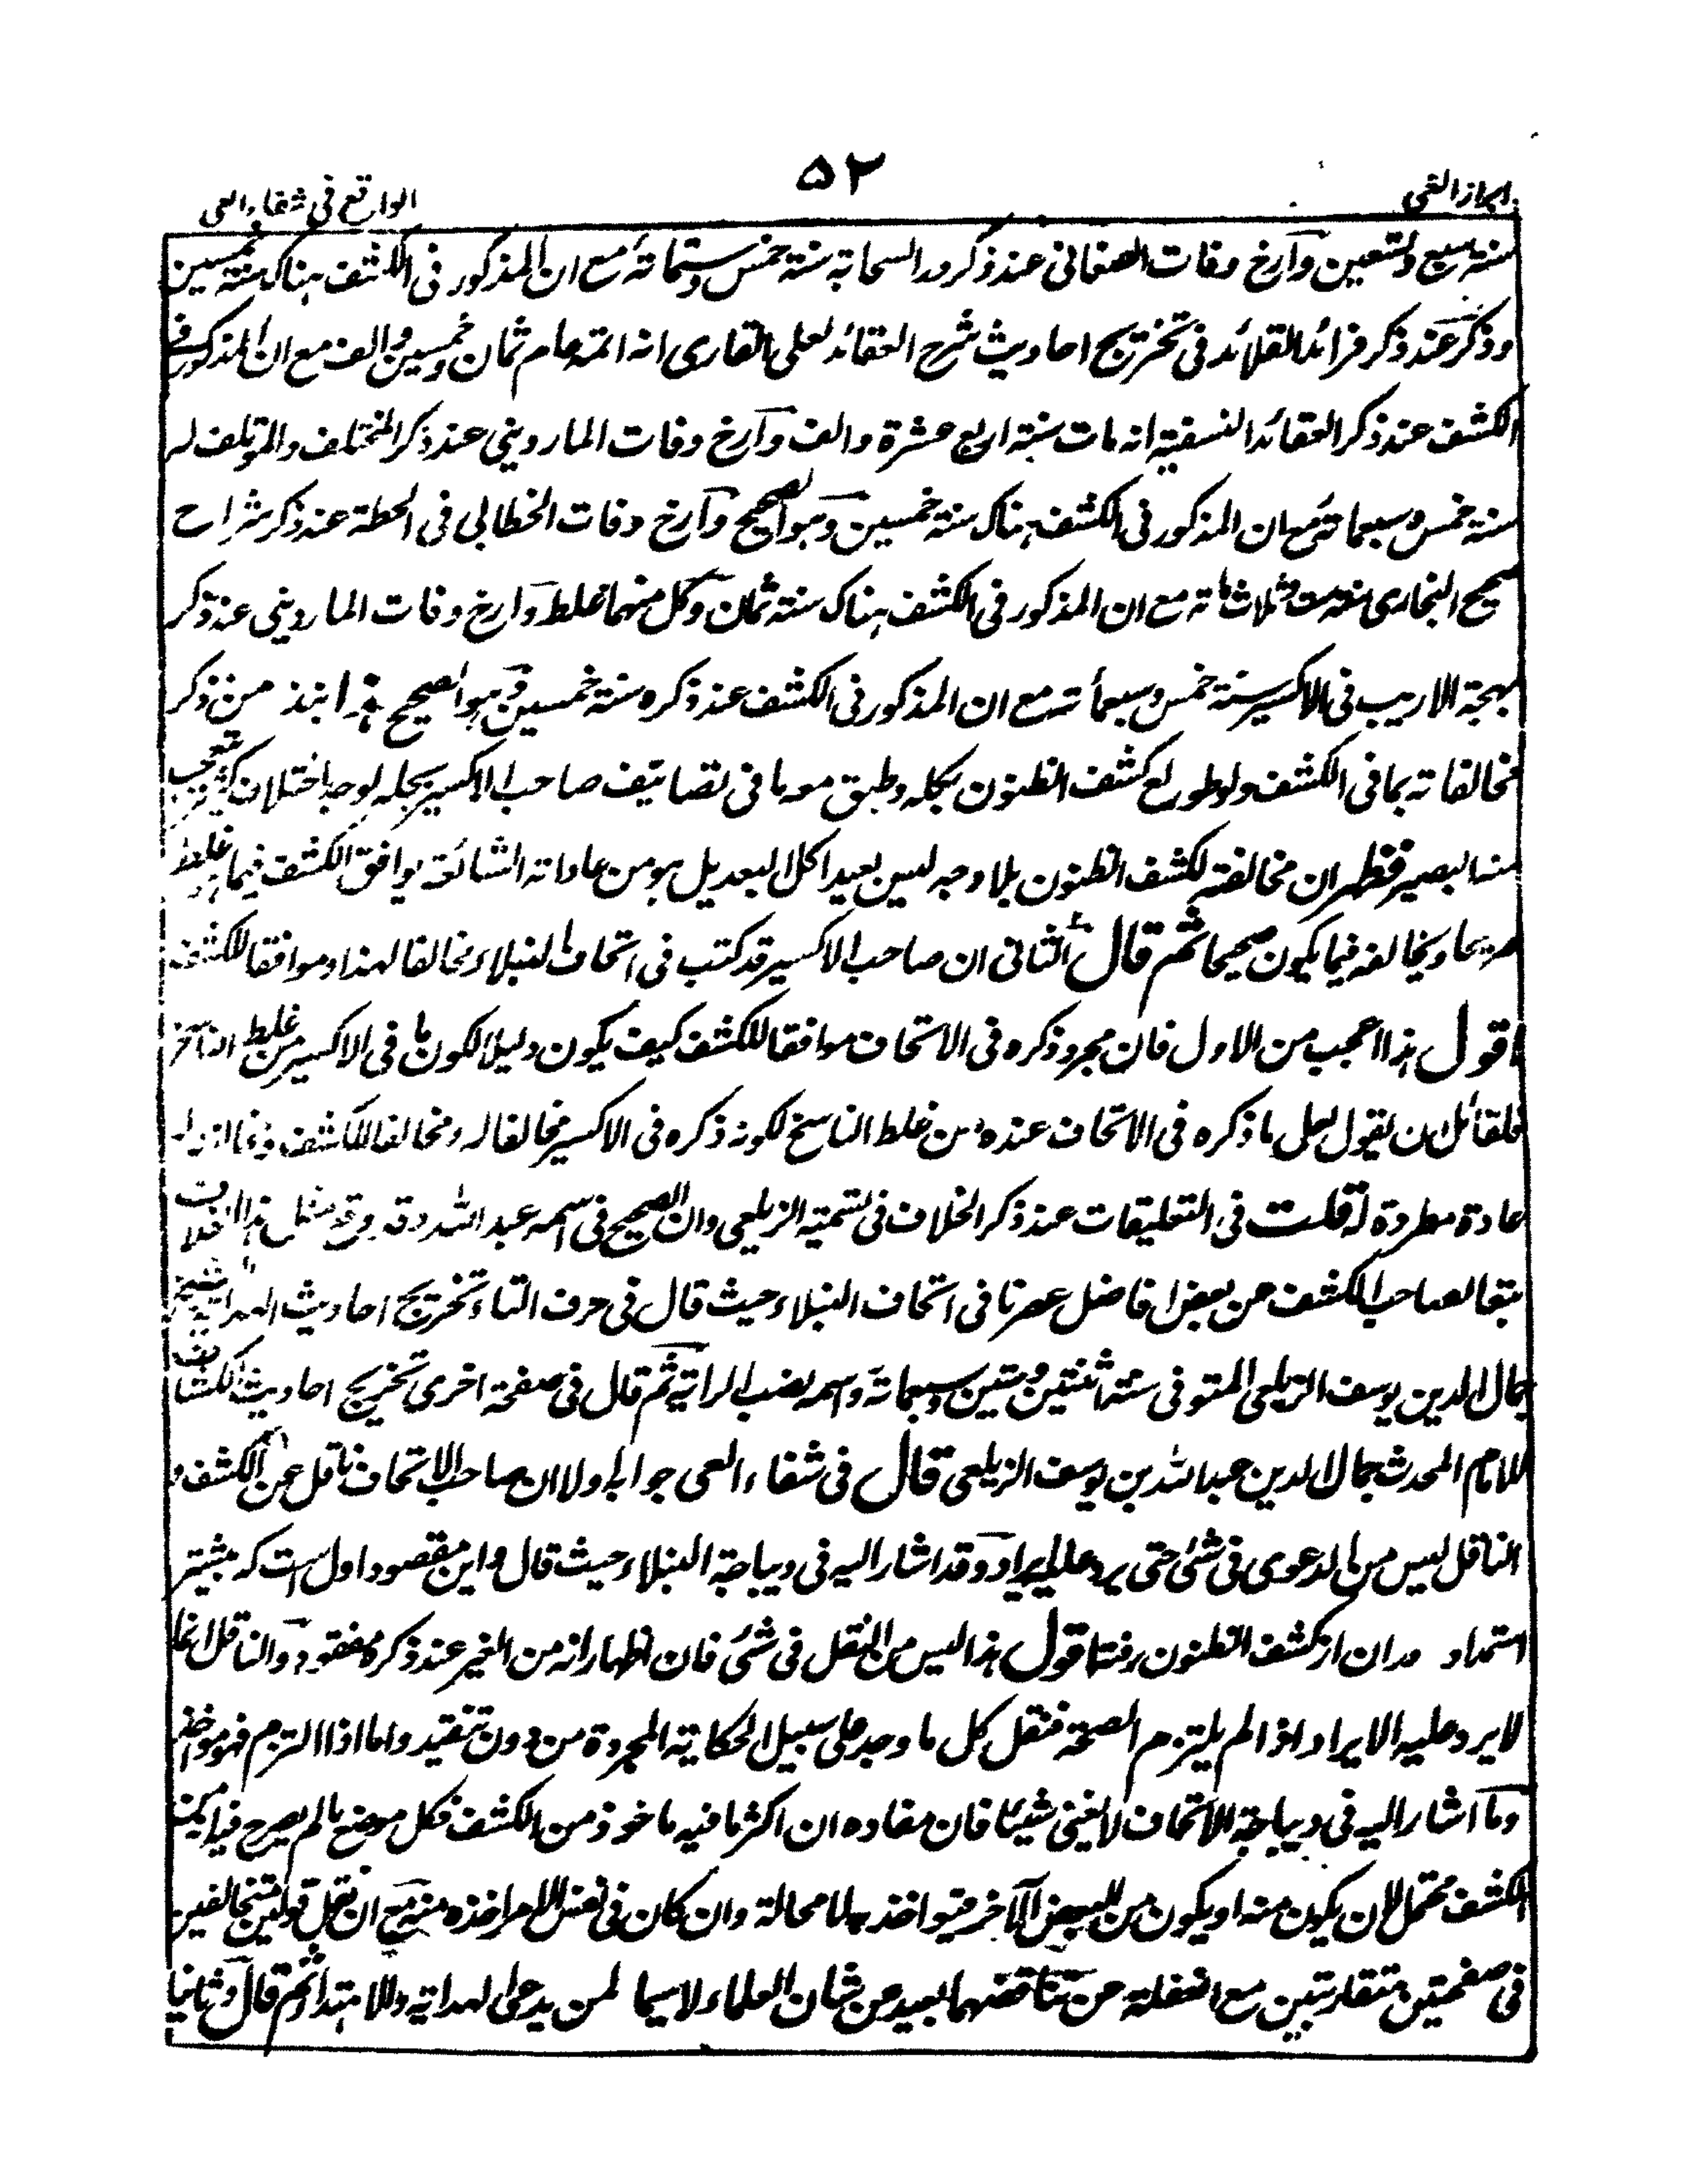 ابراز الغی
۵۲
الواقع فی شفاء العی
سنة سبع وتسعین وآرخ وفات الصغانی عند ذکر در السحابة سنة خمس وستمائة مع ان المذکور فی الکشف هناک سنة خمسین
وذکر عند ذکر فرائد القلائد فی تخریج احادیث شرح العقائد لعلی القاری انه اتمه عام ثمان وخمسین والف مع ان المذکور فی
الکشف عند ذکر العقائد النسفیة انه مات سنة اربع عشرة والف وآرخ وفات الماردینی عند ذکر المختلف والمؤتلف له
سنة خمس وسبعمائة مع ان المذکور فی الکشف هناک سنة خمسین وهو الصحیح وآرخ وفات الخطابی فی الحطة عند ذکر شراح
صحیح البخاری سنة ست وثلاث مائة مع ان المذکور فی الکشف هناک سنة ثمان وکل منهما غلط وآرخ وفات الماردینی عند ذکر
بهجة الاریب فی الاکسیر سنة خمس وسبعمأئة مع ان المذکور فی الکشف عند ذکره سنة خمسین وهو الصحیح فهذا نبذ من ذکر
مخالفاته بما فی الکشف ولو طولع کشف الظنون بکله وطبق معه ما فی تصانیف صاحب الاکسیر بجله لوجد اختلاف کثیر یتعجب
منه البصیر فظهر ان مخالفته لکشف الظنون بلا وجه لیس بعیدا کل البعد بل هو من عاداته الشائعة یوافق الکشف فیما هو غلط
صریحا ویخالفه فیما یکون صحیحا ثم قال الثانی ان صاحب الاکسیر قد کتب فی اتحاف النبلاء مخالفا لهذا وموافقا للکشف
اقول هذا اعجب من الاول فان مجرد ذکره فی الاتحاف موافقا للکشف کیف یکون دلیلا لکون ما فی الاکسیر من غلط الناسخ
فلقائل ان یقول لعل ما ذکره فی الاتحاف عنده من غلط الناسخ لکونه ذکره فی الاکسیر مخالفا له ومخالفا للکشف
عادة مطردة له قلت فی التعلیقات عند ذکر الخلاف فی تسمیة الزیلعی وان الصحیح فی اسمه عبد الله وقد وقع مثل هذا الخلاف
تبعا لصاحب الکشف من بعض افاضل عصرنا فی اتحاف النبلاء حیث قال فی حرف التاء تخریج احادیث الهدایة للشیخ
جمال الدین یوسف الزیلعی المتوفی سنة اثنتین وستین وسبعمائة واسمه نصب الرایة ثم قال فی صفحة اخری تخریج احادیث الکشاف
للامام المحدث جمال الدین عبد الله بن یوسف الزیلعی قال فی شفاء العی جوابه اولا ان صاحب الاتحاف ناقل عن الکشف و
الناقل لیس من الدعوی فی شئ حتی یرد علیه ایراد وقد اشار الیه فی دیباجة النبلاء حیث قال و این مقصود اول است که بیشتر
استمداد دران از کشف الظنون رفته اقول هذا لیس من النقل فی شئ فان اظهار انه من الغیر عند ذکره مفقود والناقل انما
لا یرد علیه الایراد اذا لم یلتزم الصحة فنقل کل ما وجد علی سبیل الحکایة المجردة من دون تنقید واما اذا التزم فهو مواخذ
وما اشار الیه فی دیباجة الاتحاف لا یغنی شیئا فان مفاده ان اکثر ما فیه ماخوذ من الکشف فکل موضع ما لم یصرح فیه
الکشف محتمل لان یکون منه او یکون من البعض الآخر فیواخذ به لا محالة وان کان فی نفس الامر اخذه منه مع ان نقل قولین متخالفین
فی صفحتین متقاربتین مع الغفلة عن تناقضهما بعید عن شان العلماء لا سیما لمن یدعی الهدایة والاهتداء ثم قال وثانیا